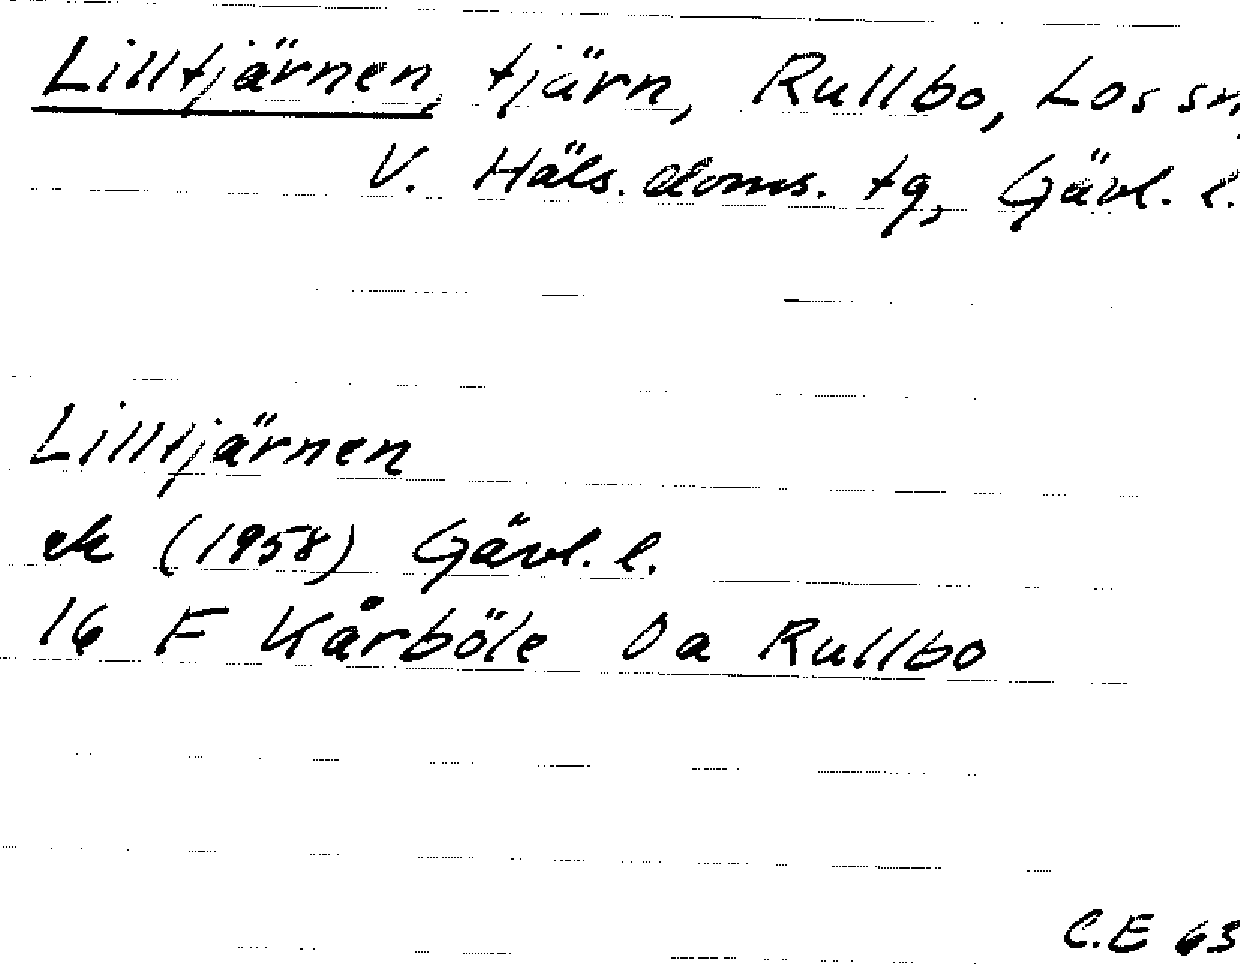 Lilltjärnen, tjärn, Rullbo, Los sn,
V. Häls. doms. tg, Gävl. l.
Lilltjärnen
ek (1958) Gävl. l.
16 F Kårböle 0a Rullbo
C.E 63